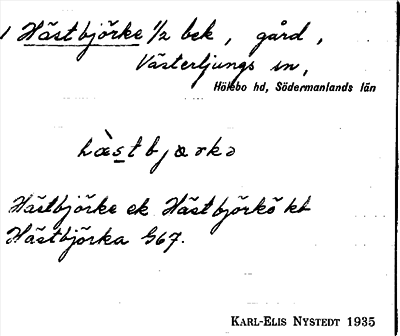 1 Hästbjörke 1/2 bek, gård,
Västerljungs sn,
Hölebo hd, Södermanlands län
hæ̀stbjœrkə
Hästbjörke ek Hästbjörkö kt
Hästbjörka G67.
KARL-ELIS NYSTEDT 1935